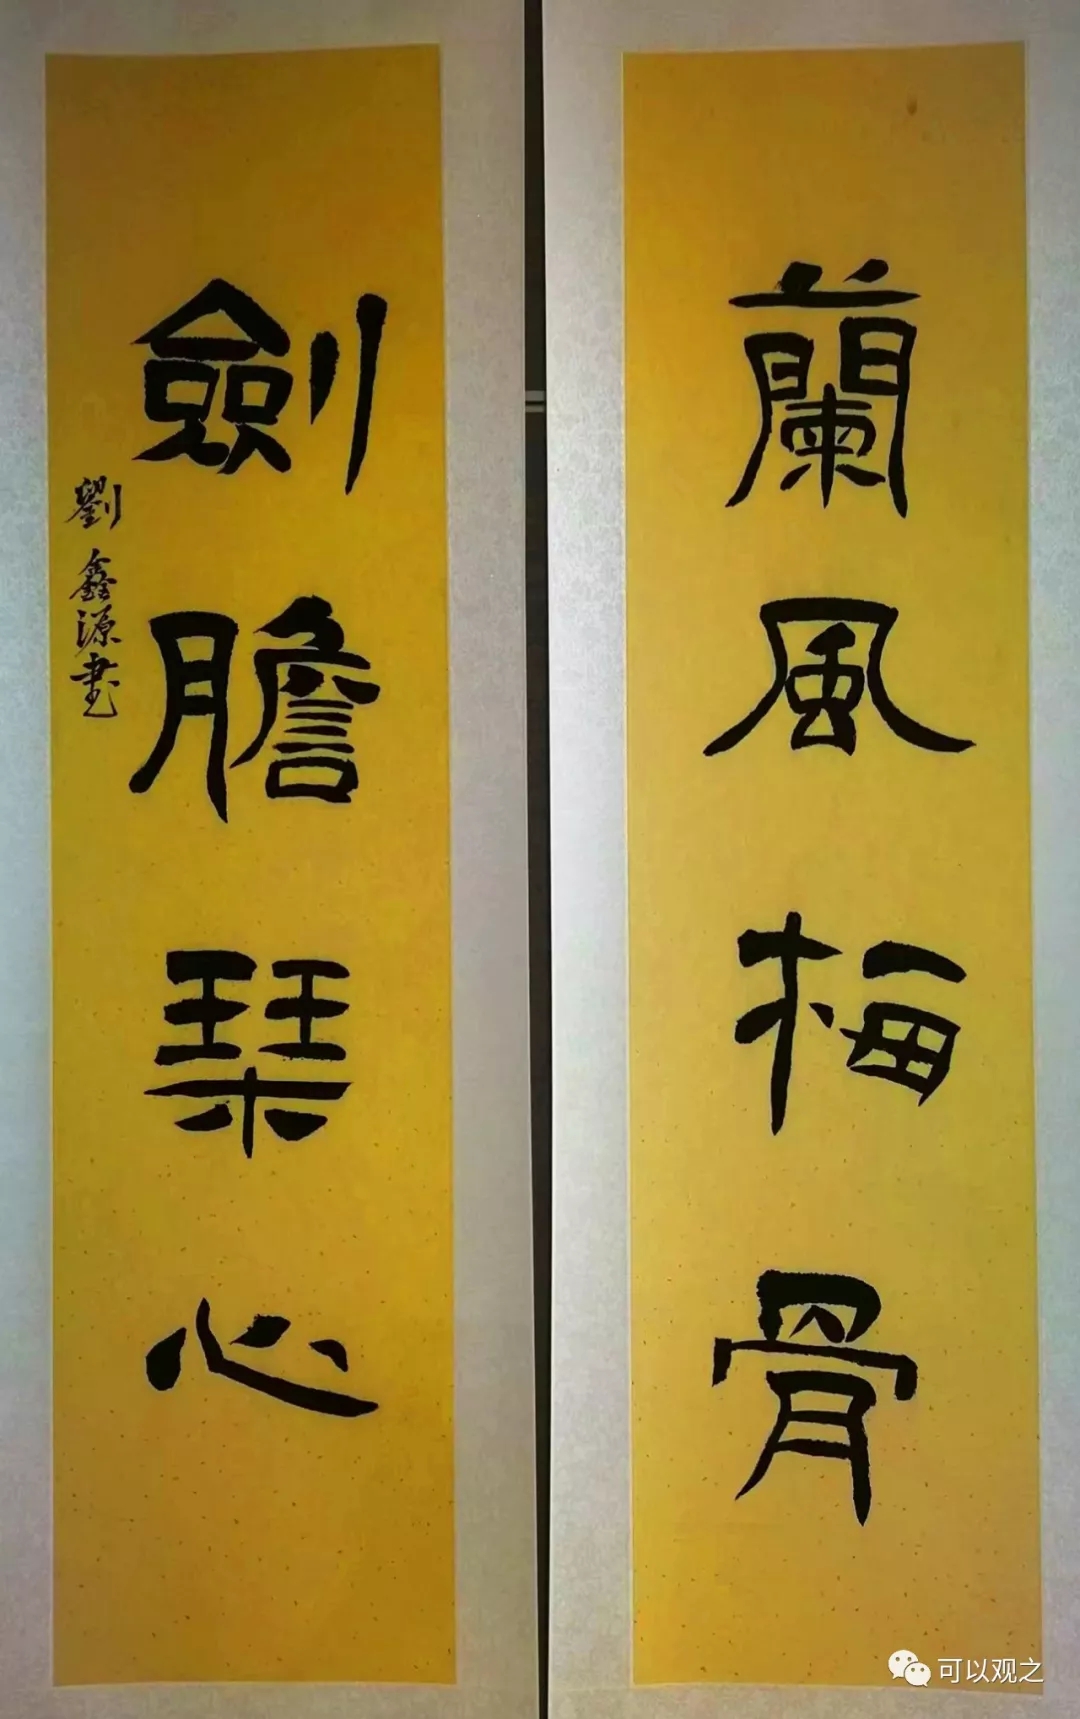 蘭風梅骨
劍膽琹心
劉鑫源書
可以观之